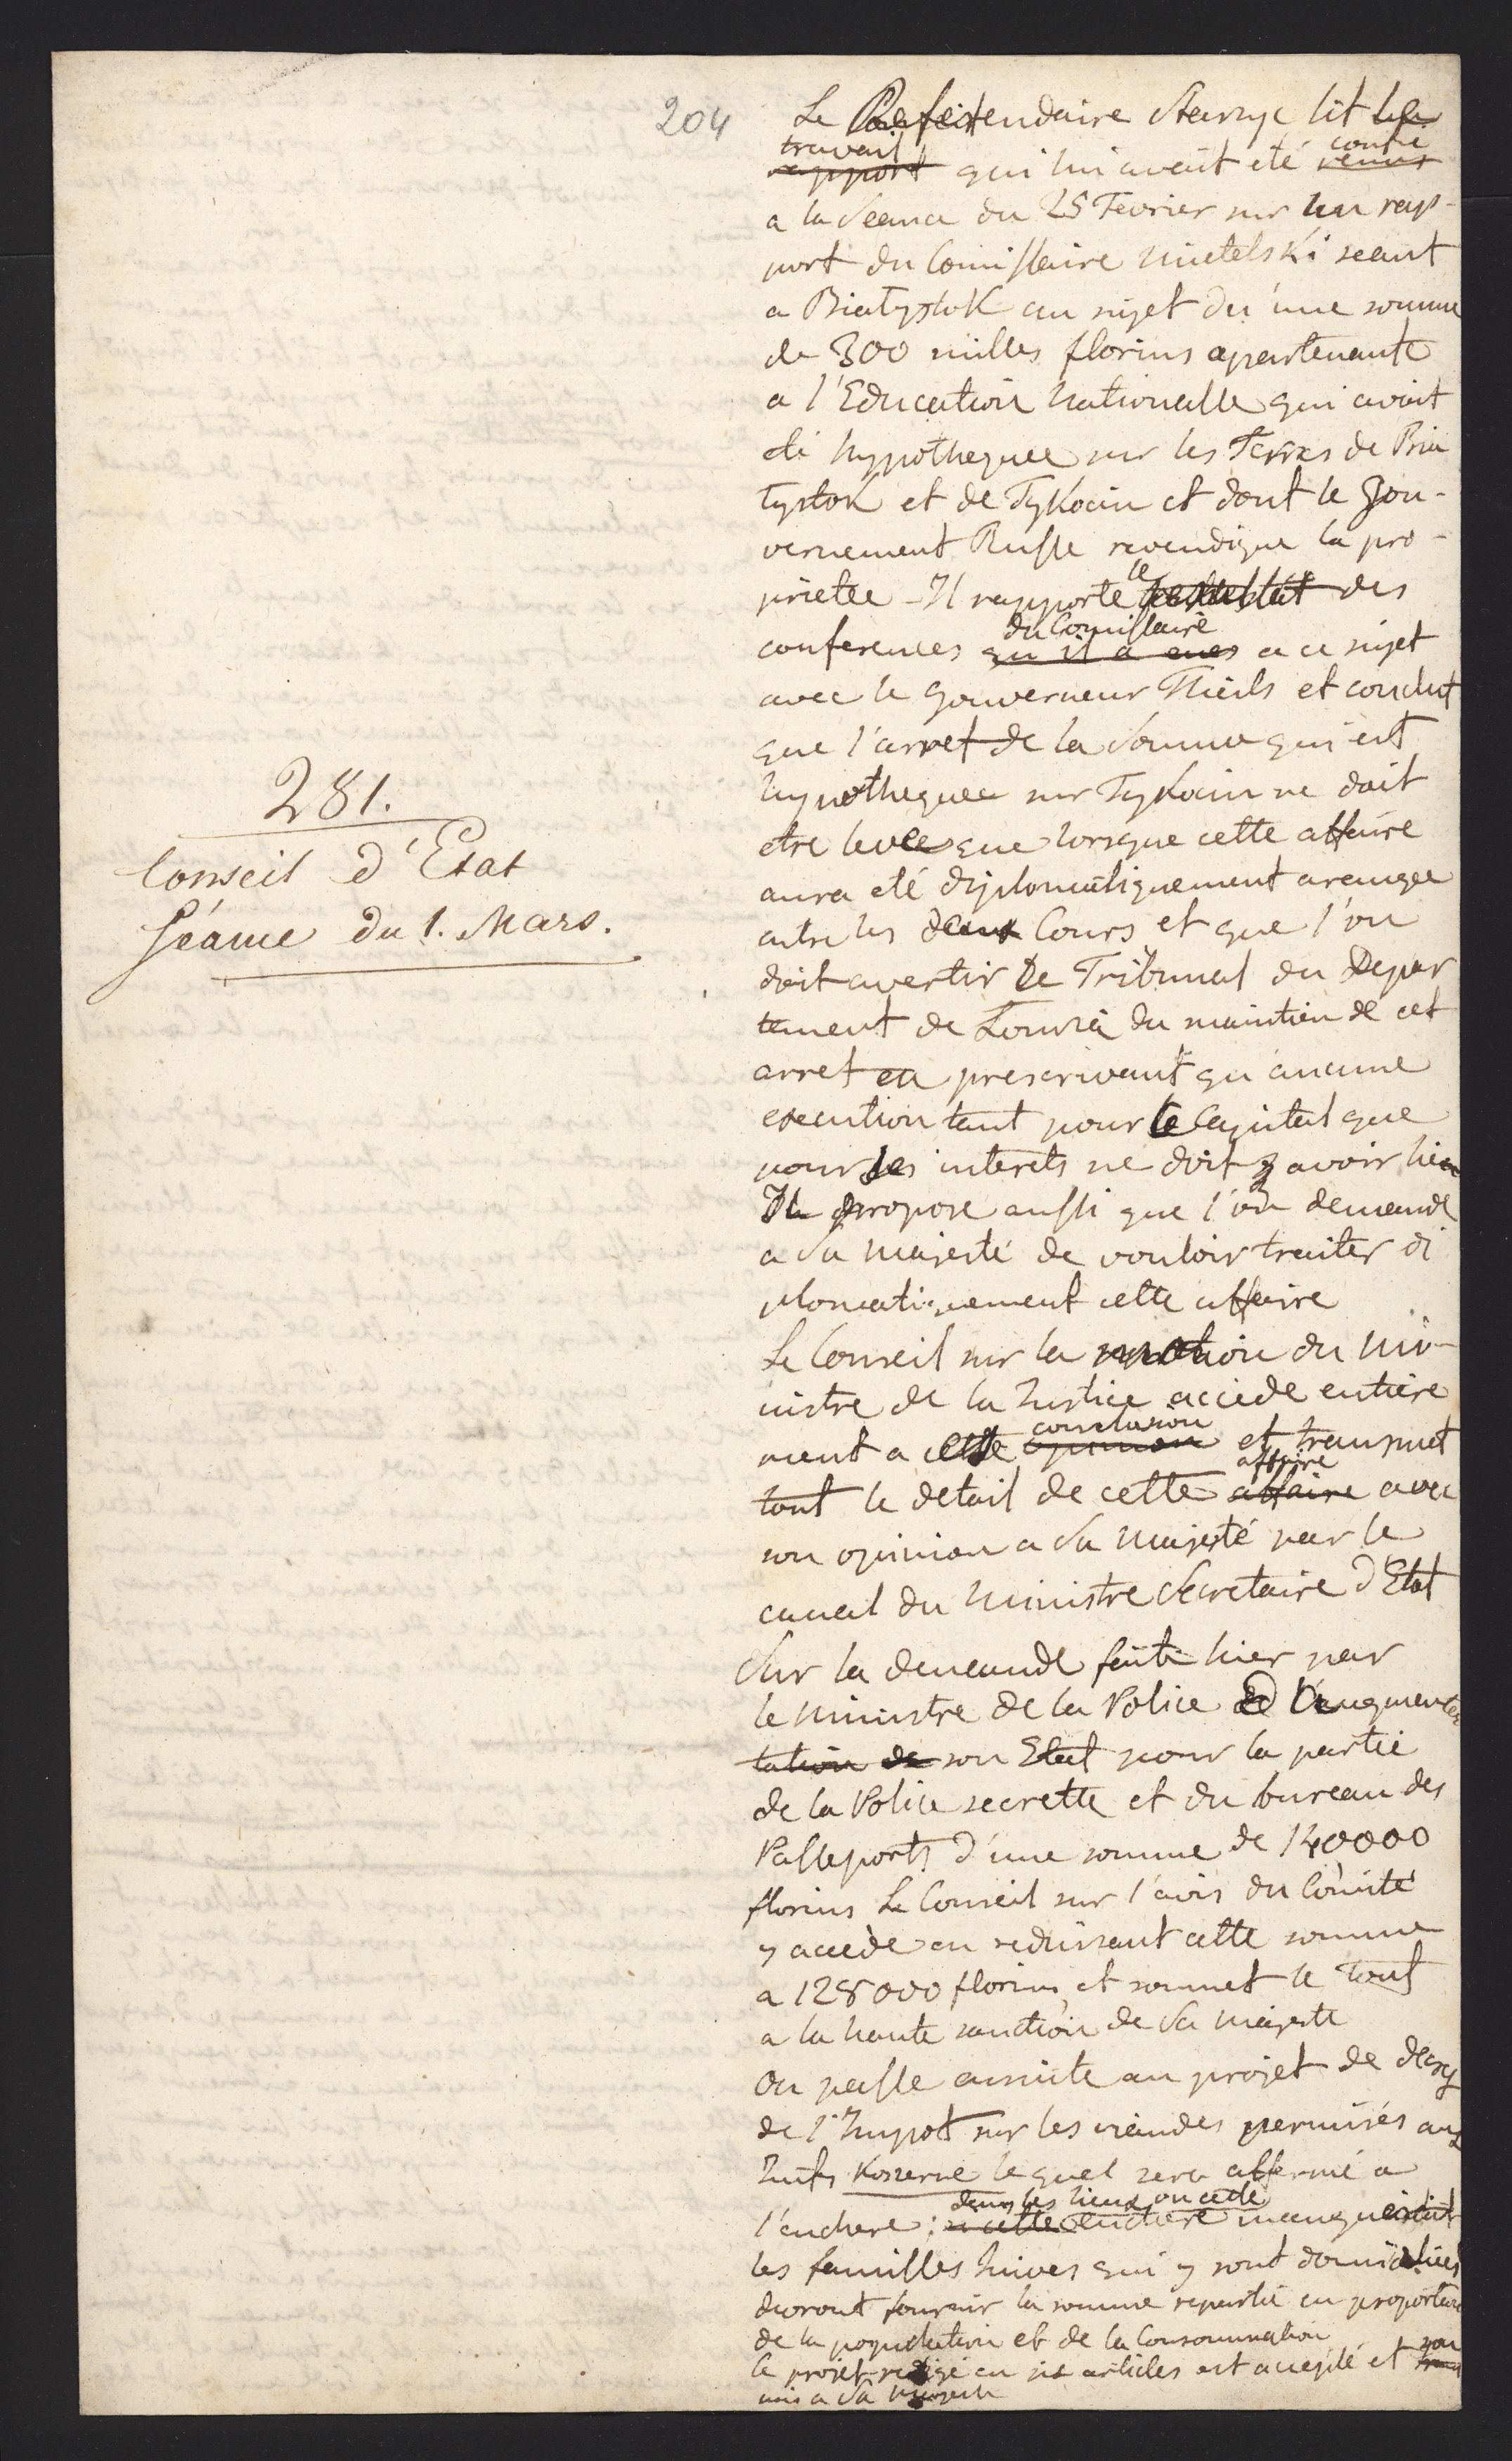 204
281.
Conseil d'Etat
Séance du 1. Mars.
Le Referendaire Starzyc lit le
travail confié
rapport qui lui avoit eté remis
a la Seance du 25 Fevrier sur un rap-
port du Comissaire Mietelski seant
a Białystok au sujet du une somme
de 300 milles florins apartenante
a l'Education Nationalle qui avoit
eté hypothequée sur les Terres de Bia
łystok et de Tykocin et dont le Gou-
vernement Russe revendique la pro-
prietée - Il rapporte le resultat des
du Comissaire
conferences qu'il a eues a ce sujet
avec le Gouverneur Thiels et conclut
que l'arret de la Somme qui est
hypothequee sur Tykocin ne doit
etre levée que lorsque cette affaire
aura eté diplomatiquement arangee
entre les deux Cours et que l'on
doit avertir le Tribunal du Depar
tement de Łomża du maintien de cet
arret en prescrivant qu'aucune
execution tant pour le Capital que
pour les interets ne doit y avoir lieu
Il propose aussi que l'on demande
a Sa Majesté de vouloir traiter di
plomatiquement cette affaire
Le Conseil sur la motion du Mi-
nistre de la Justice accede entiere
conclusion
ment a cette opinion et transmet
affaire
tout le detail de cette affaire avec
son opinion a Sa Majesté par le
canal du Ministre Secretaire d'Etat
Sur la demande faite hier par
le Ministre de la Police d'augmenter
tation de son Etat pour la partie
de la Police secrette et du bureau des
Passeports d'une somme de 140000
florins Le Conseil sur l'avis du Comité
y accède en reduisant cette somme
a 128000 florins, et soumet le tout
a la haute sanction de Sa Majesté
On passe ensuite au projet de
de l'Impot sur les viandes permises aux
Juifs Koszerne lequel sera affermé a
dans les lieux ou cette
l'enchere: si cette enchere manqueroit
les familles Juives qui y sont domiciliées
devront fournir la somme repartie en proportion
de la population et de la Consommation
Le projet redigé en six articles est accepté et sou
mis a Sa Majesté